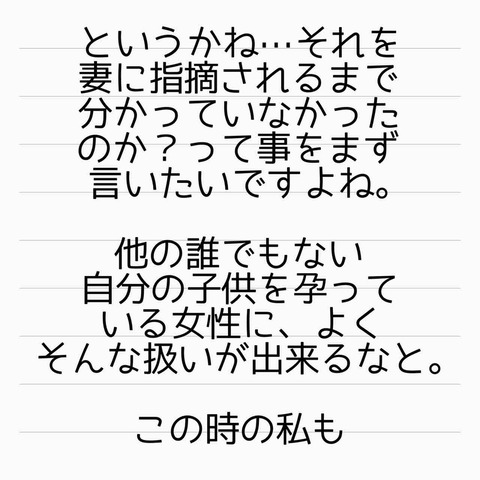 というかね…それを
妻に指摘されるまで
分かっていなかった
のか？って事をまず
言いたいですよね。
他の誰でもない
自分の子供を孕って
いる女性に、よく
そんな扱いが出来るなと。
この時の私も